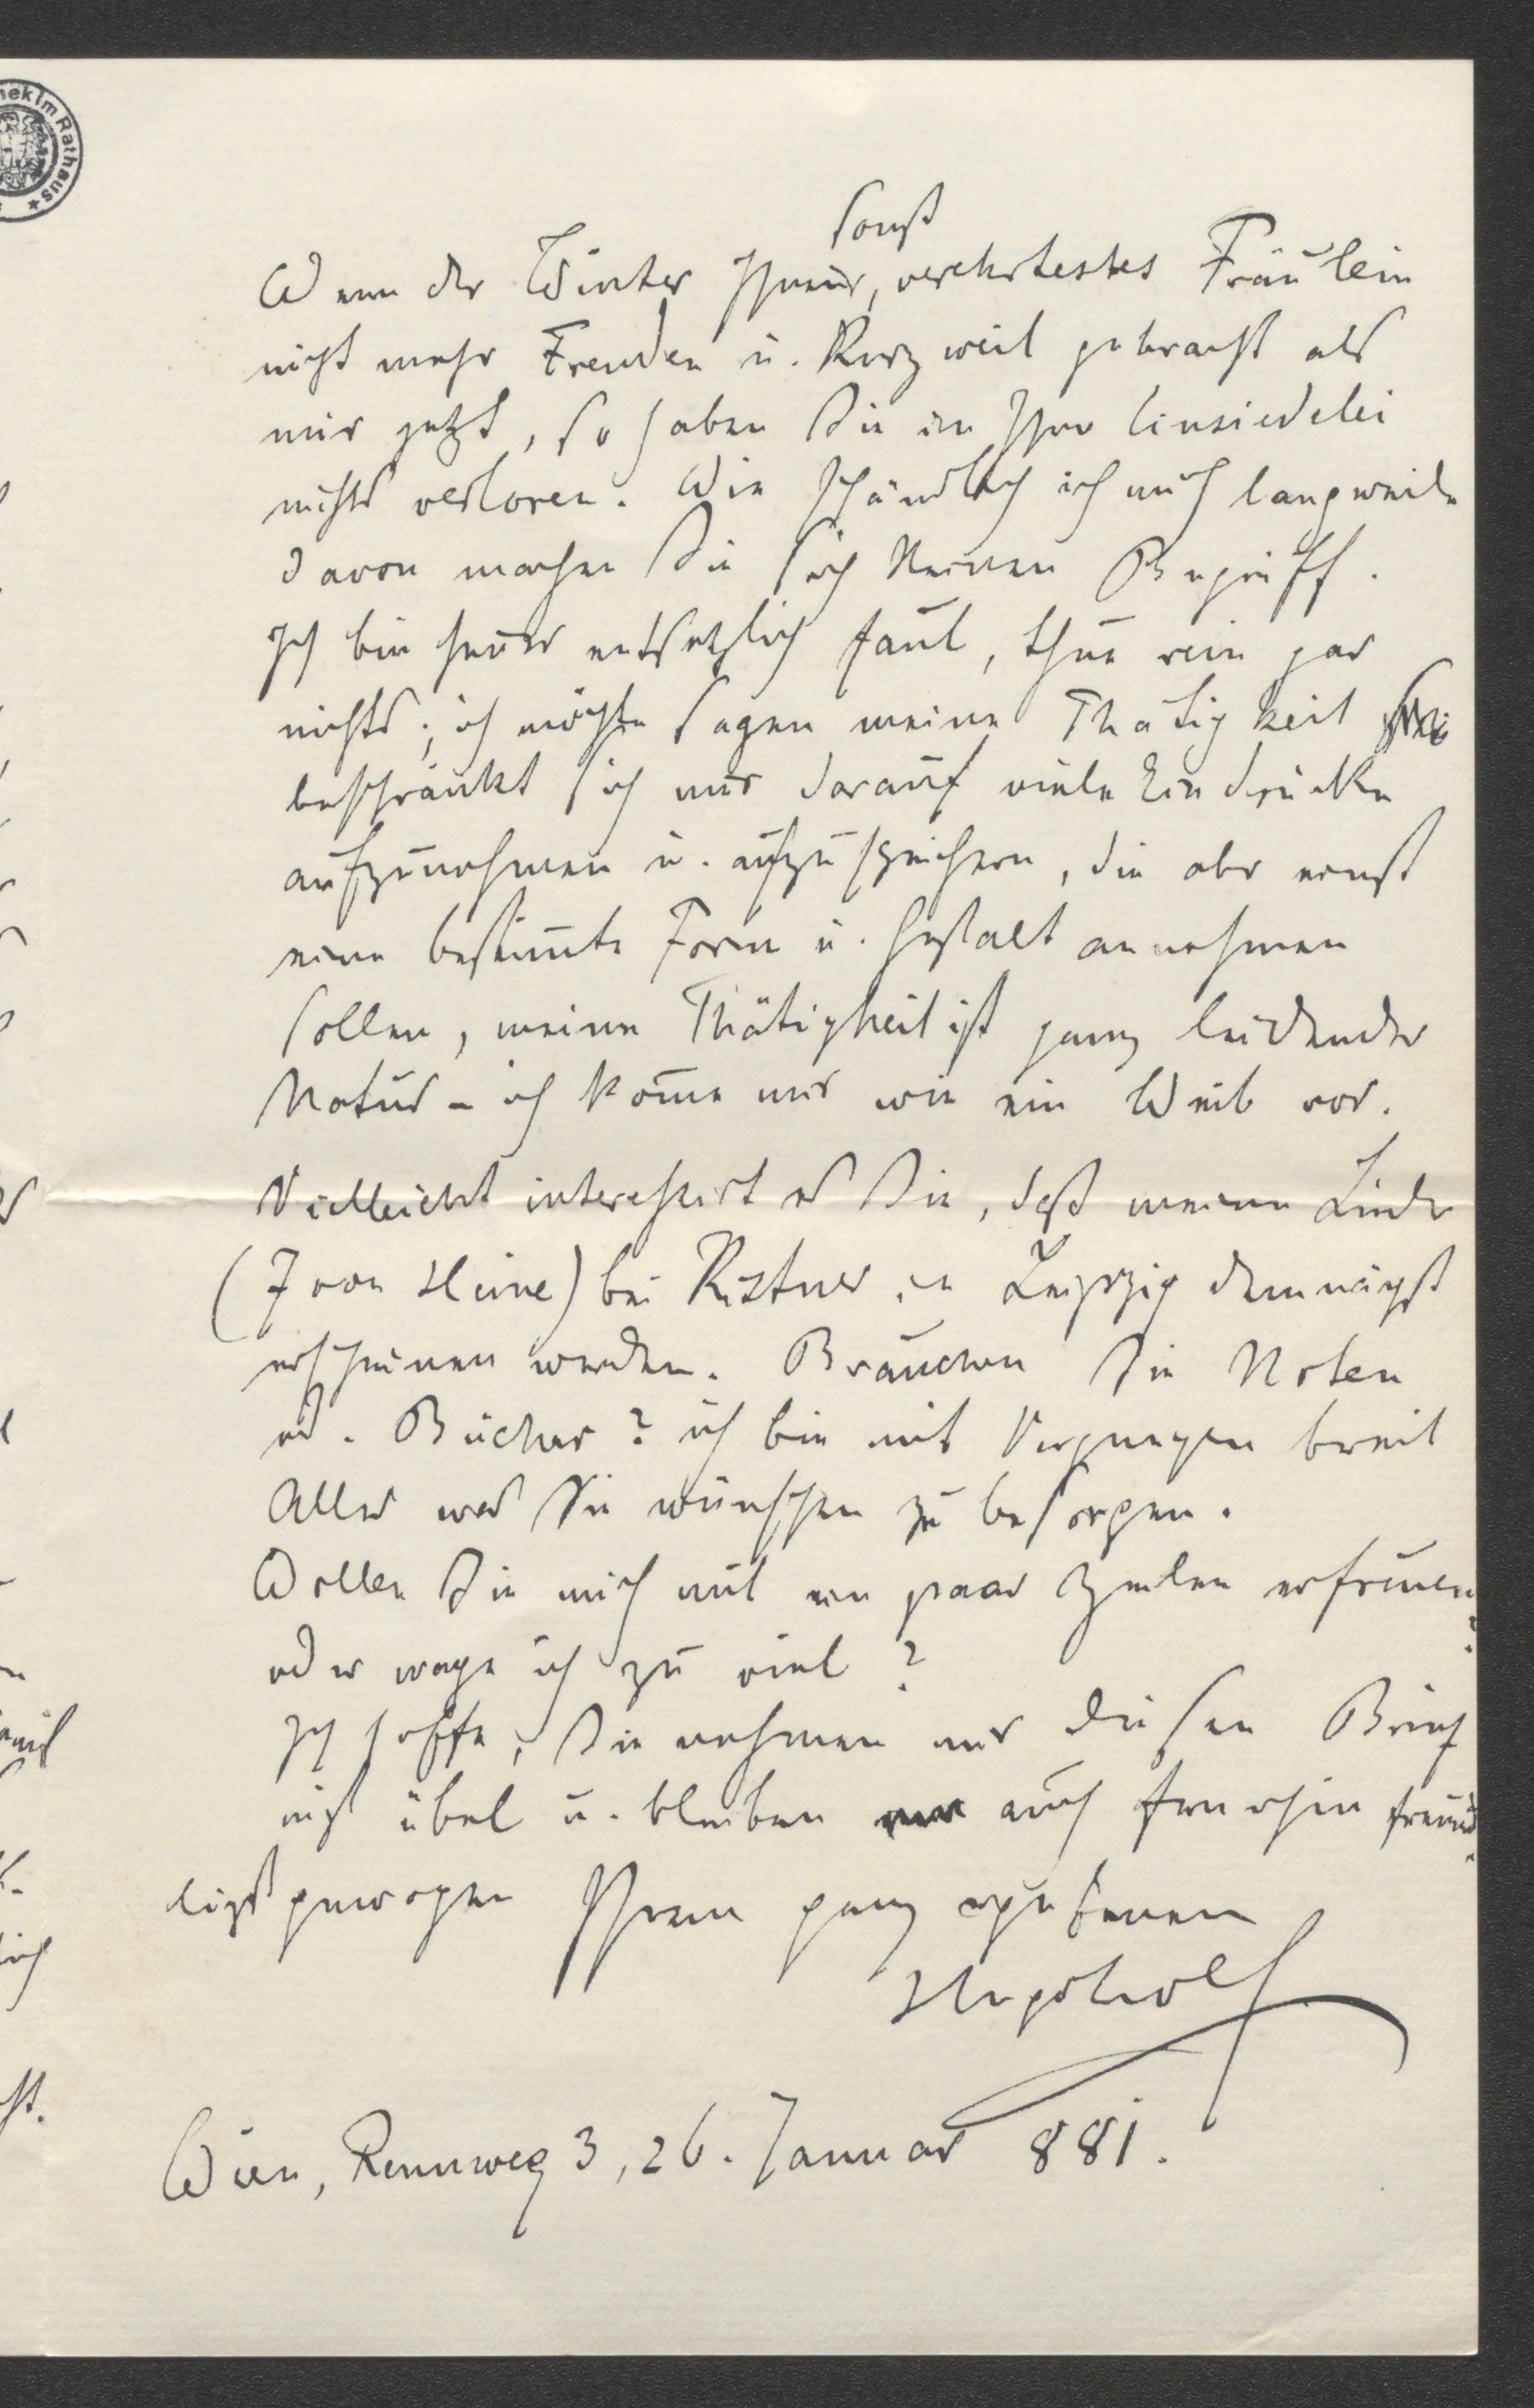 ek im Rathaus
sonst
Wenn der Winter Ihnen, verehrtestes Fräulein
nicht mehr Freuden u. Kurzweil gebracht als
mir jetzt, so haben Sie in Ihrer Einsiedelei
nichts verloren. Wie schändlich ich mich langweile
davon machen Sie sich keinen Begriff.
Ich bin heuer entsetzlich faul, thue rein gar
nichts; ich möchte sagen meine Thätigkeit
beschränkt sich nur darauf viele Eindrücke
aufzunehmen u. aufzuspeichern, die aber einst
eine bestim̅te Form u. Gestalt annehmen
sollen, meine Thätigkeit ist ganz leidender
Natur – ich kom̅e mir wie ein Weib vor.
Vielleicht interessirt es Sie, daß meine Lieder
(7 von Heine) bei Kistner in Leipzig demnächst
erscheinen werden. Brauchen Sie Noten
od. Bücher? ich bin mit Vergnügen bereit
Alles was Sie wünschen zu besorgen.
Wollen Sie mich mit ein paar Zeilen erfreuen?
oder wage ich zu viel?
Ich hoffe, Sie nehmen mir diesen Brief
nicht übel u. bleiben auch fernerhin freund-
lichst gewogen Ihrem ganz ergebenen
Hugo Wolf
Wien, Rennweg 3, 26. Januar 881.